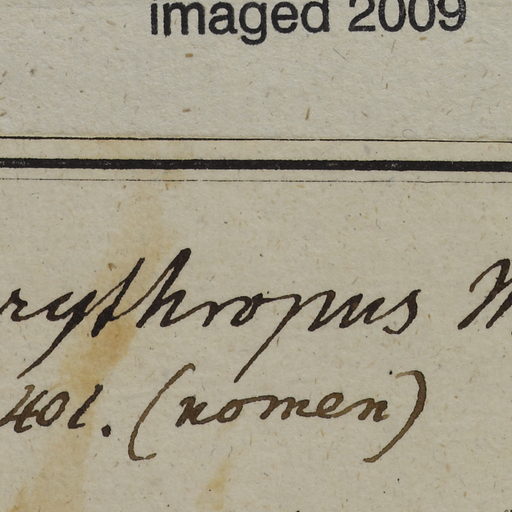 imaged 2009
rythropus M
401. (nomen)